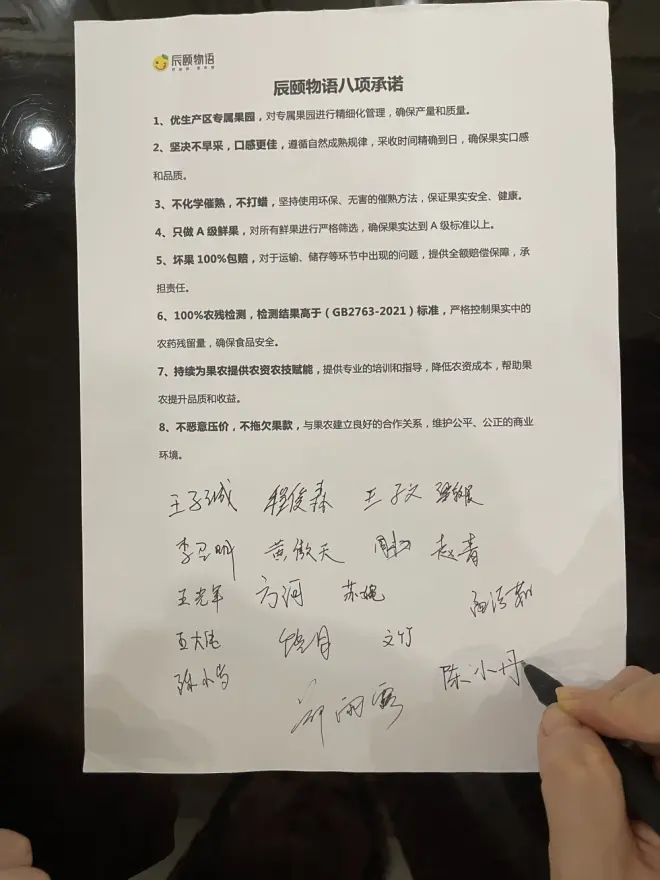 辰颐物语
辰颐物语八项承诺
1、优生产区专属果园，对专属果园进行精细化管理，确保产量和质量。
2、坚决不早采，口感更佳，遵循自然成熟规律，采收时间精确到日，确保果实口感
和品质。
3、不化学催熟，不打蜡，坚持使用环保、无害的催熟方法，保证果实安全、健康。
4、只做 A 级鲜果，对所有鲜果进行严格筛选，确保果实达到 A 级标准以上。
5、坏果 100%包赔，对于运输、储存等环节中出现的问题，提供全额赔偿保障，承
担责任。
6、100%农残检测，检测结果高于（GB2763-2021）标准，严格控制果实中的
农药残留量，确保食品安全。
7、持续为果农提供农资农技赋能，提供专业的培训和指导，降低农资成本，帮助果
农提升品质和收益。
8、不恶意压价，不拖欠果款，与果农建立良好的合作关系，维护公平、公正的商业
环境。
王子诚 程俊森 王子文
黄傲天 赵青
王光军 方河 苏娓
文竹
陈小丹
邓雨露